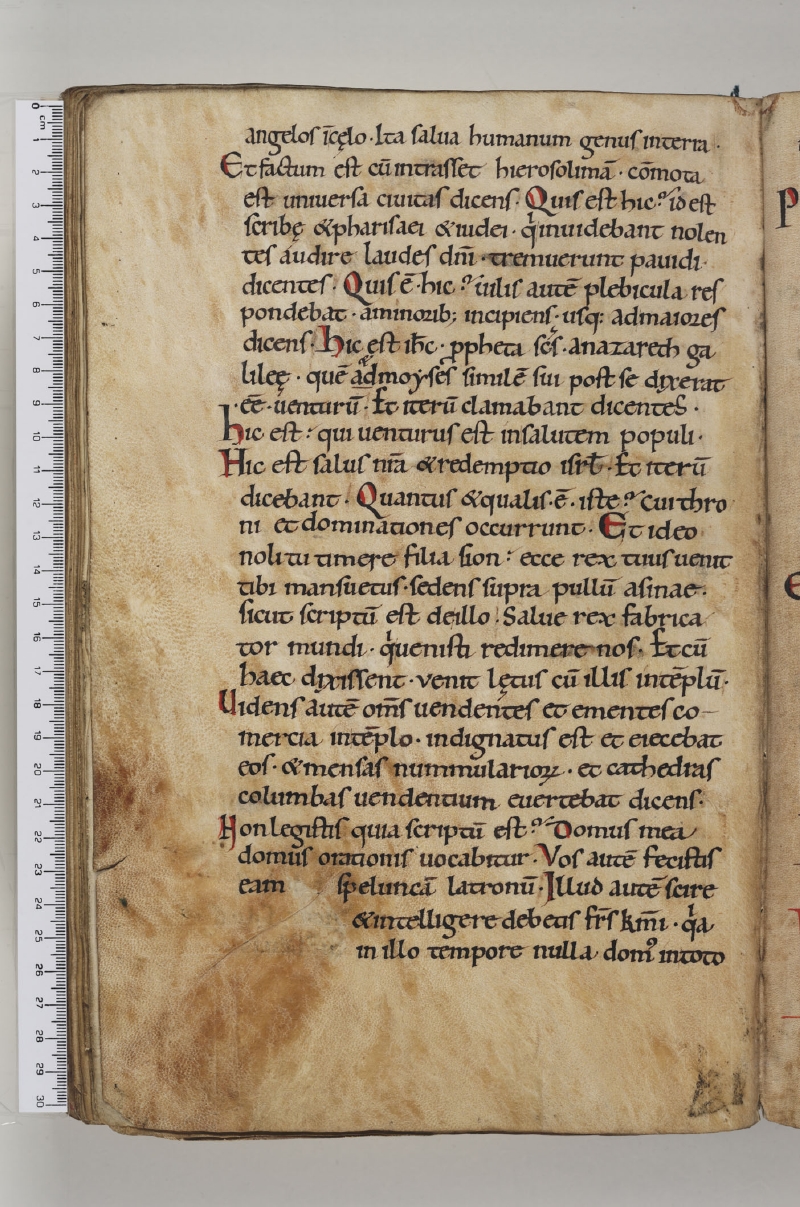 angelos ī cęlo · Ita salua humanum genus interra ·
Et factum est cū intrasset hierosolimā · cōmota
est uniuersa ciuitas dicens · Quis est hic ? id est
scribę & pharisaei & iudei · qui inuidebant nolen
tes audire laudes dn̄i · tremuerunt pauidi ·
dicentes · Quis ē · hic ? uilis autē plebicula res
pondebat · aminorib; incipiens · usq; admaiores
dicens · Hic est ih̄c · ꝓpheta sc̄s · anazareth ga
lileę · quē ad moyses similē sui post se dixerat
· eē · uenturū · Et iterū clamabant dicentes ·
hic est : qui uenturus est insalutem populi ·
Hic est salus nr̄a & redemptio isrł · Et iterū
dicebant · Quantus & qualis · ē · iste ? cui thro
ni et dominationes occurrunt · Et ideo
noli tu timere filia sion : ecce rex tuus uenit
tibi mansuetus · sedens supra pullū asinae ·
sicut scriptū est deillo · Salue rex fabrica
tor mundi · qui uenisti redimere nos · Et cū
haec dixissent · venit lętus cū illis intēplū ·
Uidens autē om̄s uendentes et ementes co
mercia intēplo · indignatus est et eiecebat
eos · & mensas nummulariorꝝ · et cathedras
columbas uendentium euertebat dicens ·
Non legistis quia scriptū est ? Domus mea
domus orationis uocabitur · Vos autē fecistis
eam speluncā latronū · Illud autē scire
& intelligere debetis fr̄s km̄i · q̇a
in illo tempore nulla domꝰ intoto
0 cm 1 2 3 4 5 6 7 8 9 10 11 12 13 14 15 16 17 18 19 20 21 22 23 24 25 26 27 28 29 30
P